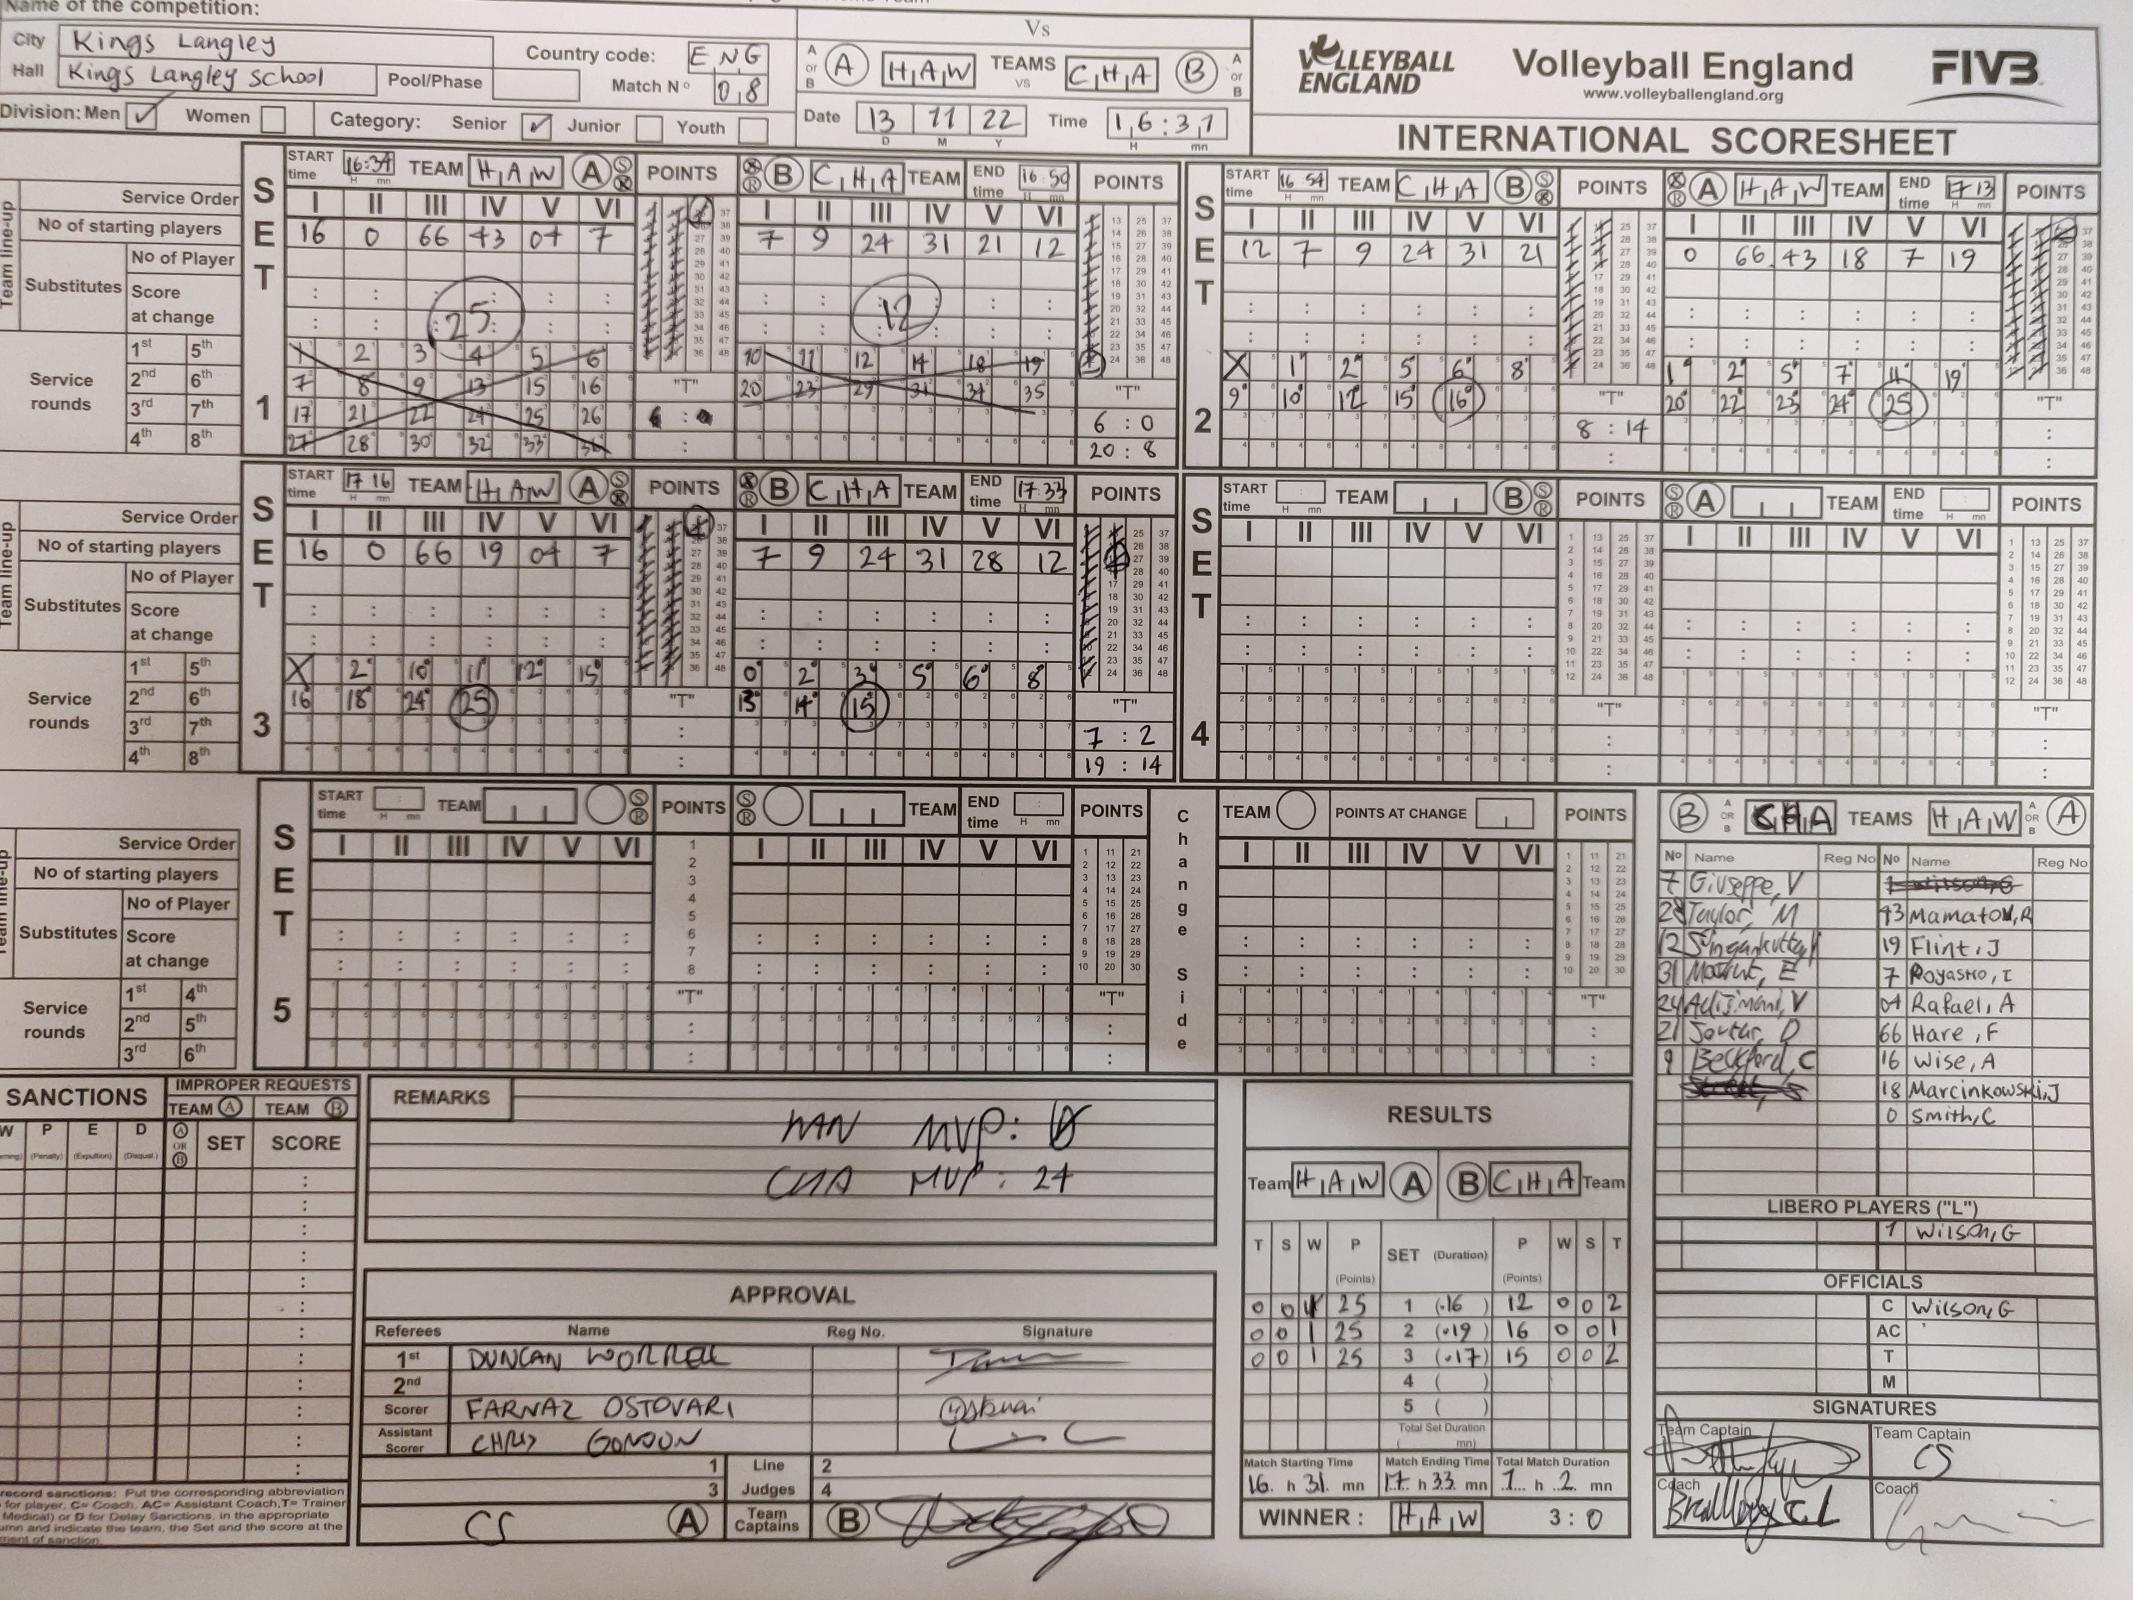 Name of the competition:
City Kings Langley
Hall Kings Langley school
Pool/Phase
Country code: ENG
Match Nº 08
Division: Men ✓ Women
Category: Senior ✓ Junior Youth
Vs
A or B A HAW TEAMS vs CHA B A or B
Date 13 11 22 Time 16:31
D M Y H mn
VOLLEYBALL ENGLAND
Volleyball England
www.volleyballengland.org
FIVB
INTERNATIONAL SCORESHEET
SET 1
START time 16:34 TEAM HAW A S R POINTS
S R B CHA TEAM END time 16:50 POINTS
Team line-up
Service Order I II III IV V VI I II III IV V VI
No of starting players 16 0 66 43 04 7 7 9 24 31 21 12
Substitutes No of Player
Score at change
25 12
Service rounds
1st 5th 1 2 3 4 5 6 10 11 12 14 18 19
2nd 6th 7 8 9 13 15 16 20 23 29 31 34 35
3rd 7th 17 21 22 24 25 26
4th 8th 27 28 30 32 33 36
"T" "T"
6 : 0
20 : 8
SET 2
START time 16 54 TEAM CHA B S R POINTS
S R A HAW TEAM END time 17 13 POINTS
I II III IV V VI I II III IV V VI
12 7 9 24 31 21 0 66 43 18 7 19
X 1 2 5 6 8 1 2 5 7 11 19
9 10 12 15 16 20 22 23 24 25
"T" "T"
8 : 14
SET 3
START time 17 16 TEAM HAW A S R POINTS
S R B CHA TEAM END time 17:33 POINTS
Team line-up
Service Order I II III IV V VI I II III IV V VI
No of starting players 16 0 66 19 04 7 7 9 24 31 28 12
Substitutes No of Player
Score at change
Service rounds
1st 5th X 2 10 11 12 15 0 2 3 5 6 8
2nd 6th 16 18 24 25 13 14 15
3rd 7th
4th 8th
"T" "T"
7 : 2
19 : 14
SET 4
START time TEAM B S R POINTS
S R A TEAM END time POINTS
I II III IV V VI I II III IV V VI
"T" "T"
SET 5
START time TEAM S R POINTS
S R TEAM END time POINTS
Team line-up
Service Order I II III IV V VI I II III IV V VI
No of starting players
Substitutes No of Player
Score at change
Service rounds
1st 4th
2nd 5th
3rd 6th
"T" "T"
Change Side
TEAM POINTS AT CHANGE POINTS
I II III IV V VI
"T"
B A OR B CHA TEAMS HAW A OR B A
Nº Name Reg No Nº Name Reg No
7 Giuseppe, V
28 Taylor, M 43 Mamatov, R
12 19 Flint, J
31 7 Royasno, I
24 04 Rafael, A
21 66 Hare, F
9 Beckford, C 16 Wise, A
18 Marcinkowski, J
0 Smith, C
LIBERO PLAYERS ("L")
1 Wilson, G
OFFICIALS
C Wilson, G
AC
T
M
SIGNATURES
Team Captain Team Captain
CS
Coach Coach
SANCTIONS
IMPROPER REQUESTS
TEAM A TEAM B
W P E D A OR B SET SCORE
(Penalty) (Expultion) (Disqual.)
record sanctions: Put the corresponding abbreviation
for player, C= Coach, AC= Assistant Coach,T= Trainer
Medical) or D for Delay Sanctions, in the appropriate
umn and indicate the team, the Set and the score at the
ment of sanction.
REMARKS
MVP:
CHA MVP: 24
APPROVAL
Referees Name Reg No. Signature
1st DUNCAN WORRELL
2nd
Scorer FARNAZ OSTOVARI
Assistant Scorer CHRIS GORDON
1 Line 2
3 Judges 4
CS A Team Captains B
RESULTS
Team HAW A B CHA Team
T S W P (Points) SET (Duration) P (Points) W S T
0 0 1 25 1 (16) 12 0 0 2
0 0 1 25 2 (19) 16 0 0 1
0 0 1 25 3 (17) 15 0 0 2
4 ( )
5 ( )
Total Set Duration
( mn)
Match Starting Time Match Ending Time Total Match Duration
16 h 31 mn 17 h 33 mn 1 h 2 mn
WINNER : HAW 3 : 0